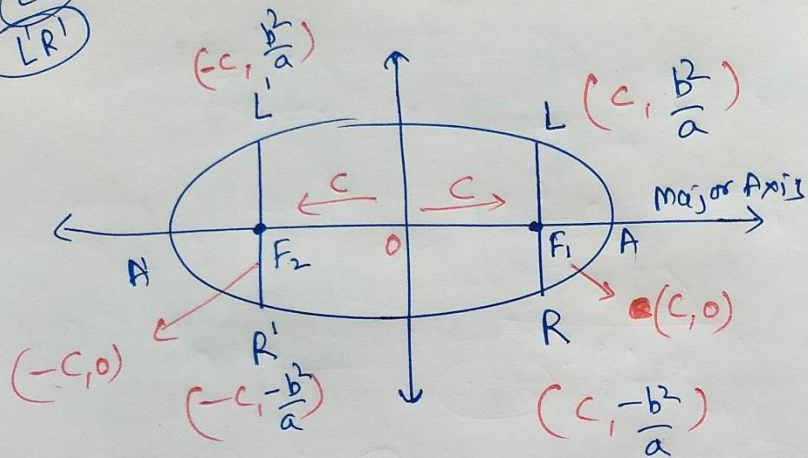 L'R'
(-c, b²/a)
L'
L (c, b²/a)
c
c
Major Axis
A'
F₂
O
F₁
A
(c,0)
(-c,0)
R'
(-c, -b²/a)
R
(c, -b²/a)